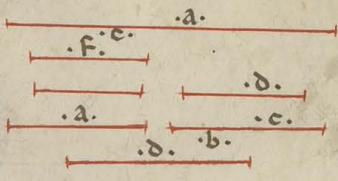 .a.
.c.
.f.
.d.
.a. .c.
.b.
.d.